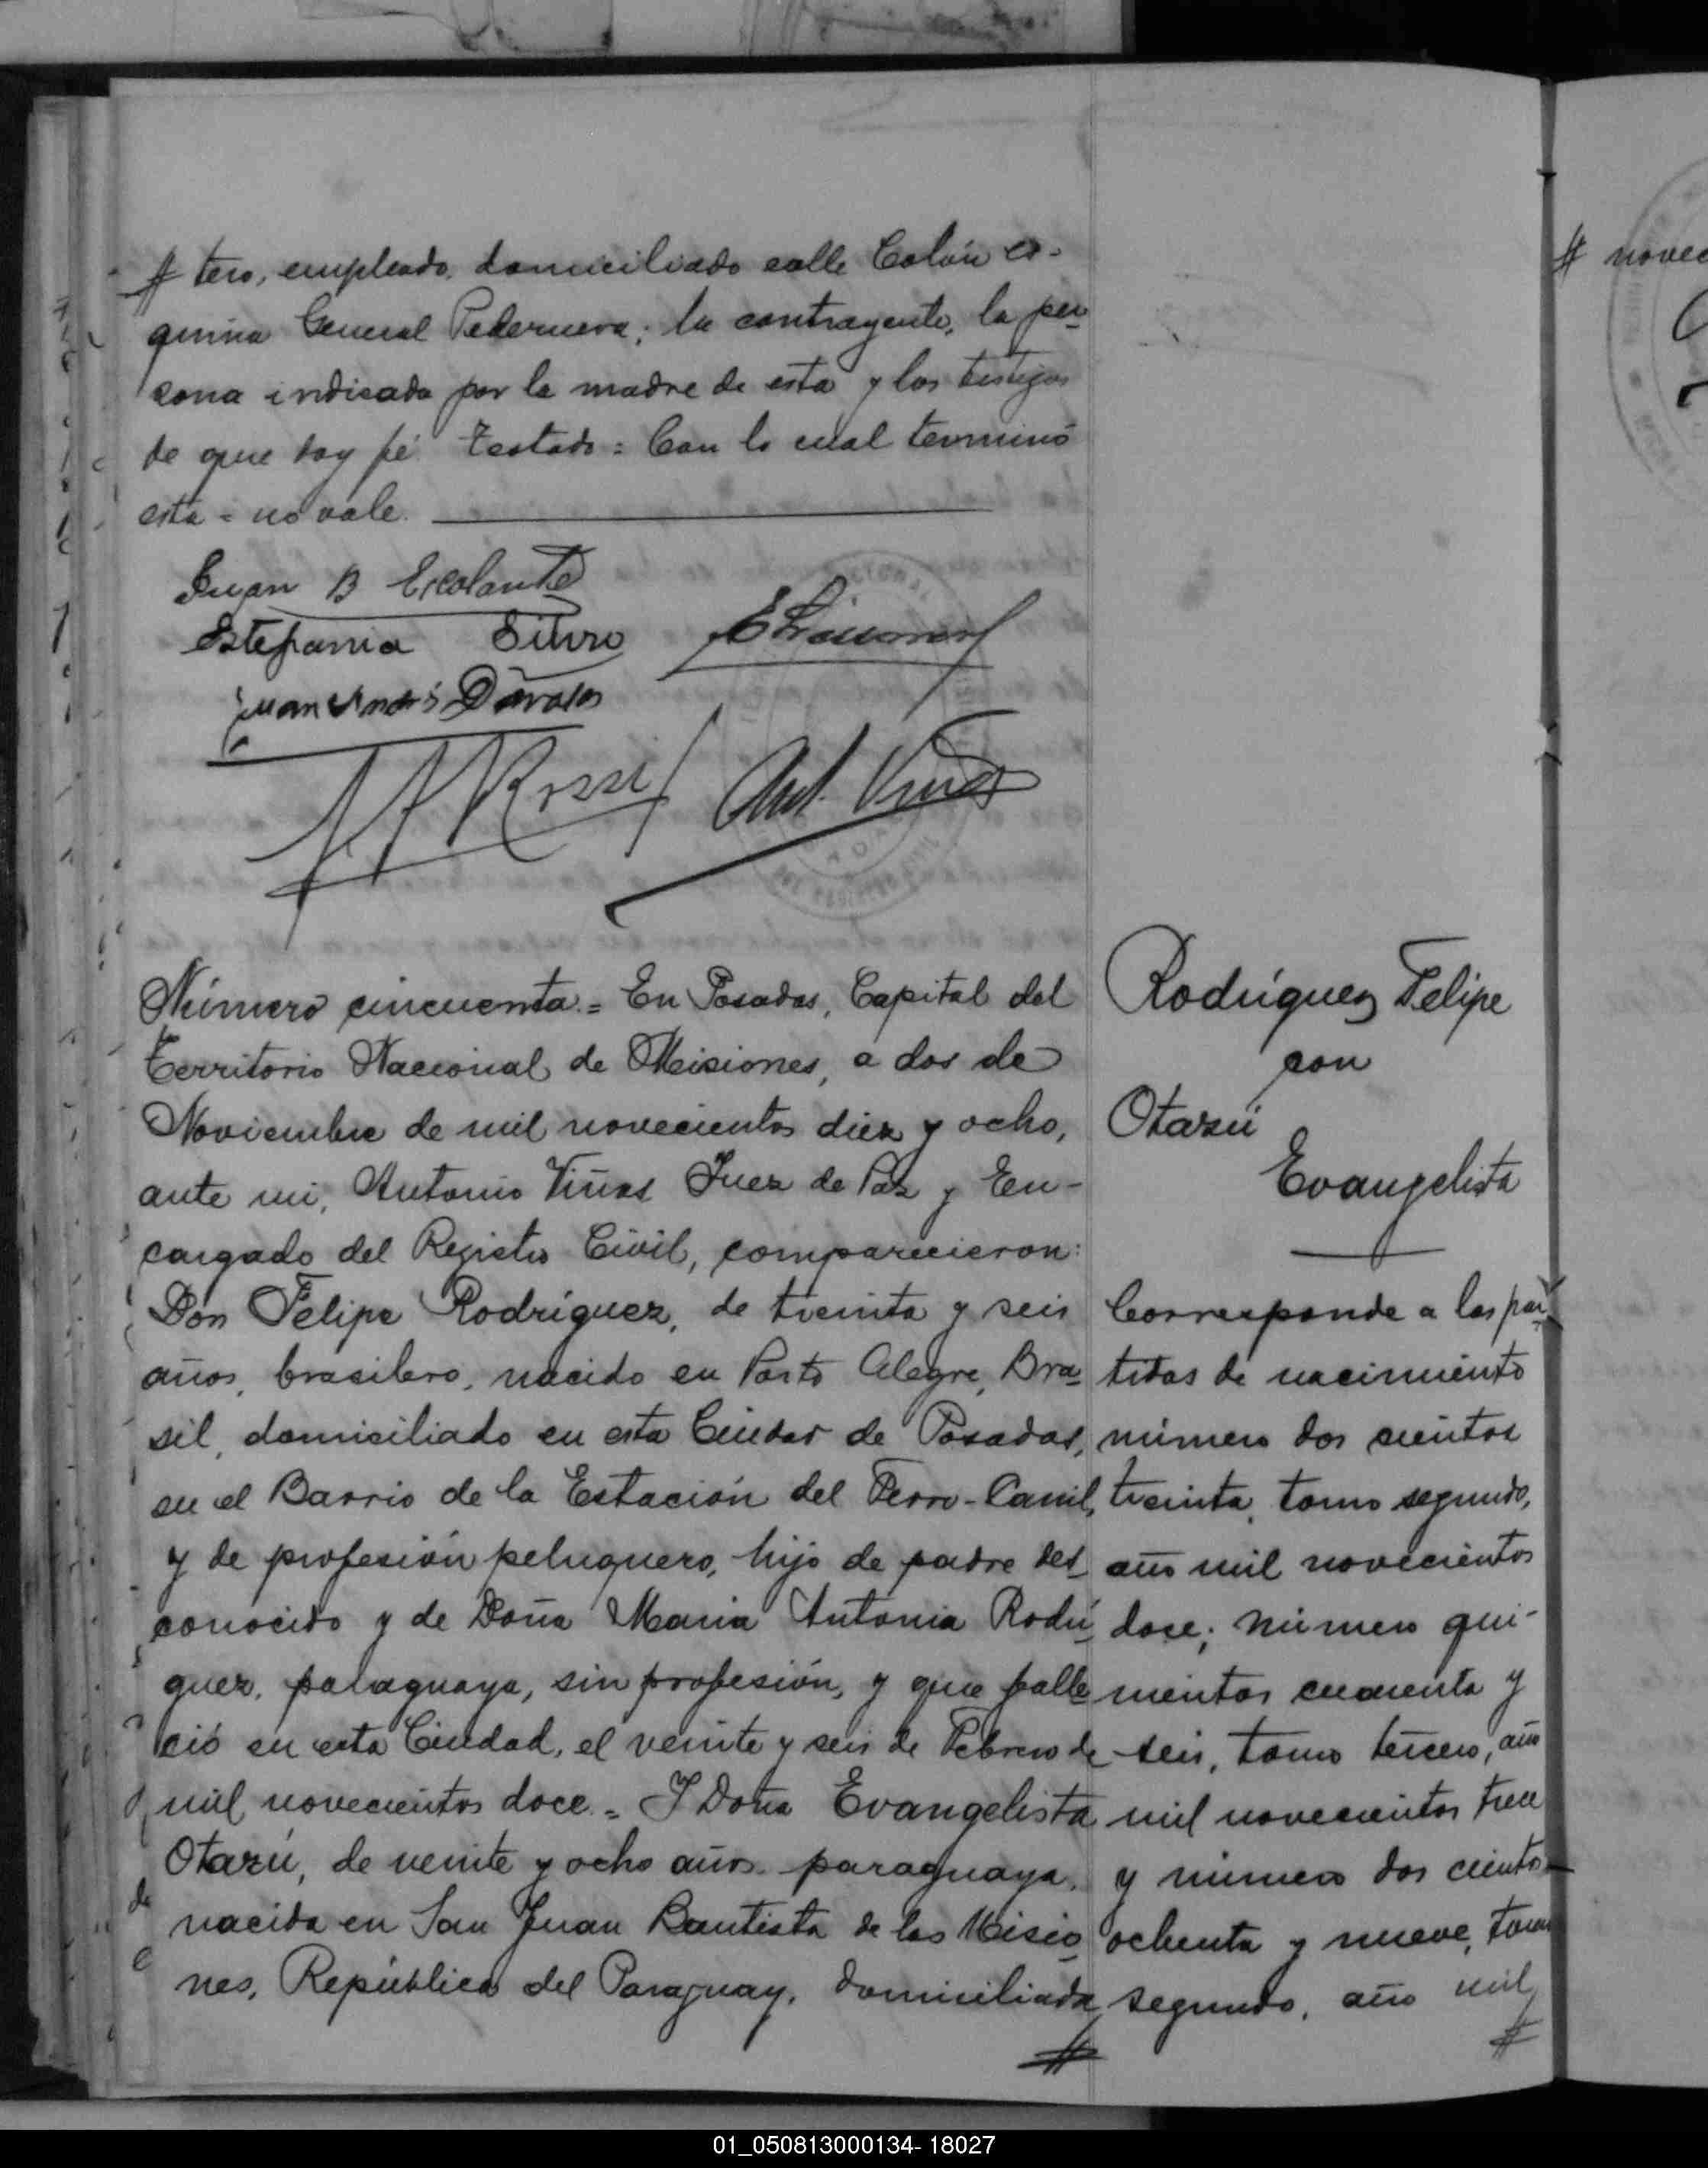 # tero, empleado, domiciliado calle Colón es-
quina General Pedernera; la contrayente, la per
sona indicada por la madre de esta y los testigos
de que doy fé. Testado = Con lo cual terminó
esta = no vale.
Juan B Escalante
Estefania
Juan Andrés Dávalos
Rossi Ant. Viñas
Número cincuenta = En Posadas, Capital del
Territorio Nacional de Misiones, a dos de
Noviembre de mil novecientos diez y ocho,
ante mi, Antonio Viñas Juez de Paz y En-
cargado del Registro Civil, comparecieron:
Don Felipe Rodríguez, de treinta y seis
años, brasilero, nacido en Porto Alegre, Bra
sil, domiciliado en esta Ciudad de Posadas,
en el Barrio de la Estación del Ferro-Carril,
y de profesión peluquero, hijo de padre des
conocido y de Doña Maria Antonia Rodrí
guez, paraguaya, sin profesión, y que falle
ció en esta Ciudad, el veinte y seis de Febrero de
mil novecientos doce = Y Doña Evangelista
Otazú, de veinte y ocho años, paraguaya,
nacida en San Juan Bautista de las Misio
nes, República del Paraguay, domiciliada
#
Rodríguez Felipe
con
Otazú
Evangelista
Corresponde a las par
tidas de nacimiento
número dos cientos
treinta, tomo segundo,
año mil novecientos
doce; número qui-
nientos cuarenta y
seis, tomo tercero, año
mil novecientos trece
y número dos cientos
ochenta y nueve, tomo
segundo, año mil
#
# novec
01_050813000134- 18027